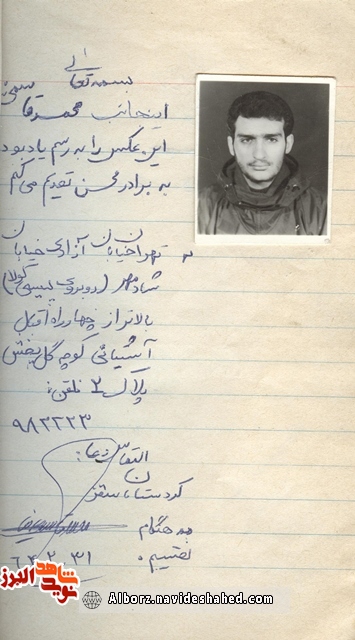 بسمه تعالی
اینجانب محمد قاسمی
این عکس را به رسم یادبود
به برادر محسن تقدیم می کنم
تهران خیابان آزادی خیابان
شادمهر (روبروی پپسی کولا)
بالاتر از چهارراه اقبال
آشتیانی کوچه گل بخش
پلاک ۲ تلفن:
۹۸۳۲۲۳
التماس دعا:
کردستان سقز
به هنگام
تقسیم.
۶۴،۲،۳۱
شاهد
نوید البرز
Alborz.navideshahed.com